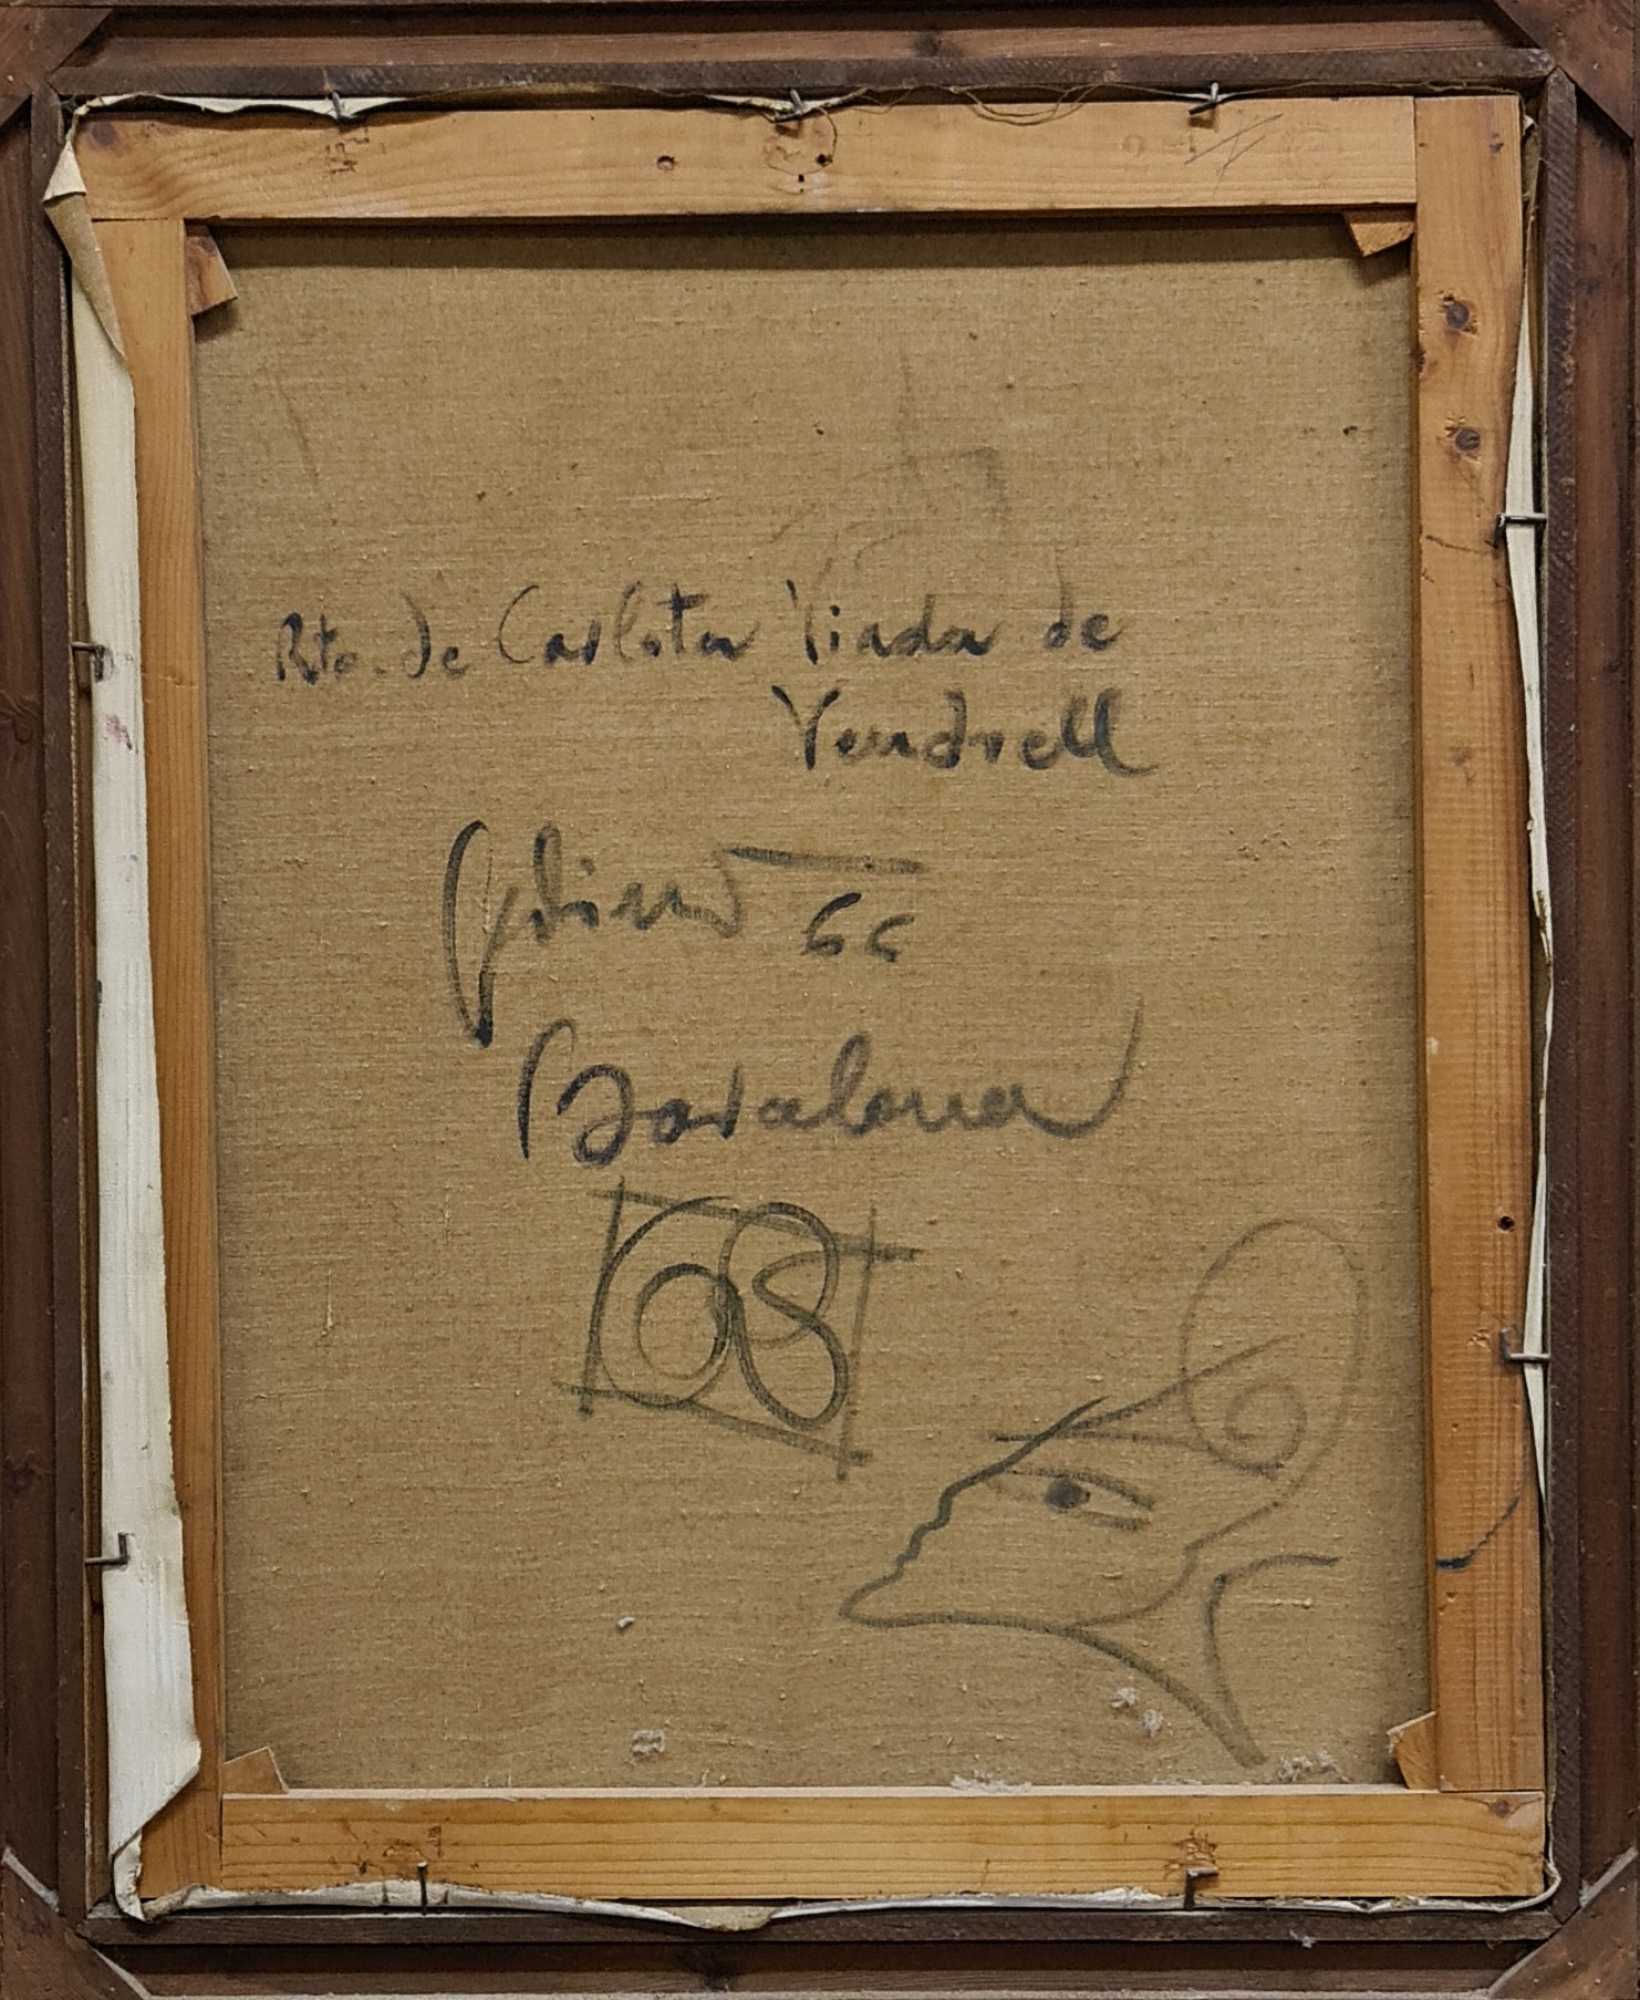 Rto. de Carlota Viada de
Vendrell
66
Badalona